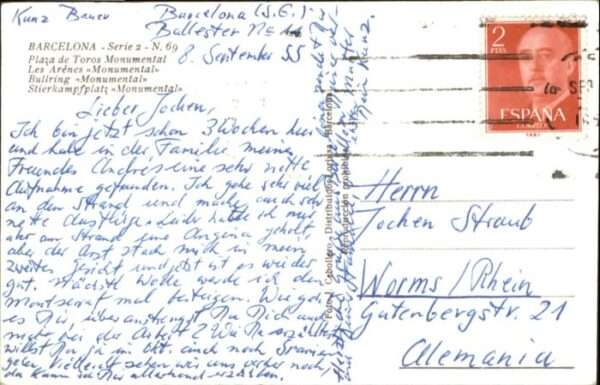 Kunz Bauer
Barcelona (S.E.)
Ballester
8. September 55
BARCELONA - Serie 2 - N. 69
Plaza de Toros Monumental
Les Arènes «Monumental»
Bullring «Monumental»
Stierkampfplatz «Monumental»
Lieber Jochen,
Ich bin jetzt schon 3 Wochen hier
und habe in der Familie meines
Freundes Andres eine sehr nette
Aufnahme gefunden. Ich gehe sehr viel
an den Strand und mache auch sehr
nette Ausflüge. Leider hatte ich mir
am Strand eine Angina geholt
aber der Arzt stach mich in mein
zweites Gesicht und jetzt ist es wieder
gut. Nächste Woche werde ich den
Montserrat mal besteigen. Wie geht
es Dir, überanstrengst Du Dich auch
nicht bei der Arbeit? Wie Du erzähltest
willst Du ja im Okt. auch nach Spanien
gehen. Vielleicht sehen wir uns vorher noch,
da kann ich Dir allerhand erzählen.
Dein Kunz.
Foto J. Caballero - Distribución - Barcelona
Reproducción prohibida
2
PTAS
ESPAÑA
CORREOS
SEP
Herrn
Jochen Straub
Worms/Rhein
Gutenbergstr. 21
Alemania